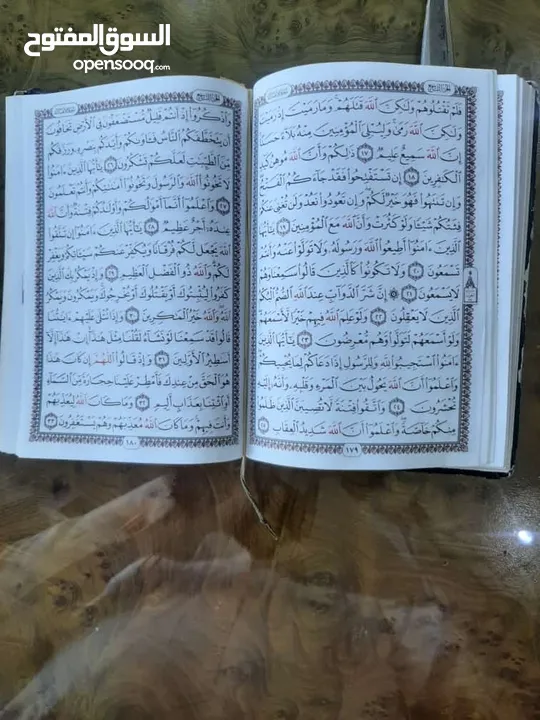 السوق المفتوح
opensooq.com
فَلَمْ تَقْتُلُوهُمْ وَلَٰكِنَّ ٱللَّهَ قَتَلَهُمْ وَمَا رَمَيْتَ إِذْ رَمَيْتَ
وَلَٰكِنَّ ٱللَّهَ رَمَىٰ وَلِيُبْلِىَ ٱلْمُؤْمِنِينَ مِنْهُ بَلَآءً حَسَنًا
إِنَّ ٱللَّهَ سَمِيعٌ عَلِيمٌ ١٧ ذَٰلِكُمْ وَأَنَّ ٱللَّهَ مُوهِنُ كَيْدِ
ٱلْكَٰفِرِينَ ١٨ إِن تَسْتَفْتِحُوا۟ فَقَدْ جَآءَكُمُ ٱلْفَتْحُ
وَإِن تَنتَهُوا۟ فَهُوَ خَيْرٌ لَّكُمْ وَإِن تَعُودُوا۟ نَعُدْ وَلَن تُغْنِىَ عَنكُمْ
فِئَتُكُمْ شَيْـًٔا وَلَوْ كَثُرَتْ وَأَنَّ ٱللَّهَ مَعَ ٱلْمُؤْمِنِينَ ١٩ يَٰٓأَيُّهَا
ٱلَّذِينَ ءَامَنُوٓا۟ أَطِيعُوا۟ ٱللَّهَ وَرَسُولَهُۥ وَلَا تَوَلَّوْا۟ عَنْهُ وَأَنتُمْ
تَسْمَعُونَ ٢٠ وَلَا تَكُونُوا۟ كَٱلَّذِينَ قَالُوا۟ سَمِعْنَا وَهُمْ
لَا يَسْمَعُونَ ٢١ إِنَّ شَرَّ ٱلدَّوَآبِّ عِندَ ٱللَّهِ ٱلصُّمُّ ٱلْبُكْمُ
ٱلَّذِينَ لَا يَعْقِلُونَ ٢٢ وَلَوْ عَلِمَ ٱللَّهُ فِيهِمْ خَيْرًا لَّأَسْمَعَهُمْ
وَلَوْ أَسْمَعَهُمْ لَتَوَلَّوا۟ وَّهُم مُّعْرِضُونَ ٢٣ يَٰٓأَيُّهَا ٱلَّذِينَ
ءَامَنُوا۟ ٱسْتَجِيبُوا۟ لِلَّهِ وَلِلرَّسُولِ إِذَا دَعَاكُمْ لِمَا يُحْيِيكُمْ
وَٱعْلَمُوٓا۟ أَنَّ ٱللَّهَ يَحُولُ بَيْنَ ٱلْمَرْءِ وَقَلْبِهِۦ وَأَنَّهُۥٓ إِلَيْهِ
تُحْشَرُونَ ٢٤ وَٱتَّقُوا۟ فِتْنَةً لَّا تُصِيبَنَّ ٱلَّذِينَ ظَلَمُوا۟
مِنكُمْ خَآصَّةً وَٱعْلَمُوٓا۟ أَنَّ ٱللَّهَ شَدِيدُ ٱلْعِقَابِ ٢٥
١٧٩
وَٱذْكُرُوٓا۟ إِذْ أَنتُمْ قَلِيلٌ مُّسْتَضْعَفُونَ فِى ٱلْأَرْضِ تَخَافُونَ
أَن يَتَخَطَّفَكُمُ ٱلنَّاسُ فَـَٔاوَىٰكُمْ وَأَيَّدَكُم بِنَصْرِهِۦ وَرَزَقَكُم
مِّنَ ٱلطَّيِّبَٰتِ لَعَلَّكُمْ تَشْكُرُونَ ٢٦ يَٰٓأَيُّهَا ٱلَّذِينَ ءَامَنُوا۟
لَا تَخُونُوا۟ ٱللَّهَ وَٱلرَّسُولَ وَتَخُونُوٓا۟ أَمَٰنَٰتِكُمْ وَأَنتُمْ تَعْلَمُونَ
٢٧ وَٱعْلَمُوٓا۟ أَنَّمَآ أَمْوَٰلُكُمْ وَأَوْلَٰدُكُمْ فِتْنَةٌ وَأَنَّ ٱللَّهَ
عِندَهُۥٓ أَجْرٌ عَظِيمٌ ٢٨ يَٰٓأَيُّهَا ٱلَّذِينَ ءَامَنُوٓا۟ إِن تَتَّقُوا۟
ٱللَّهَ يَجْعَل لَّكُمْ فُرْقَانًا وَيُكَفِّرْ عَنكُمْ سَيِّـَٔاتِكُمْ وَيَغْفِرْ
لَكُمْ وَٱللَّهُ ذُو ٱلْفَضْلِ ٱلْعَظِيمِ ٢٩ وَإِذْ يَمْكُرُ بِكَ ٱلَّذِينَ
كَفَرُوا۟ لِيُثْبِتُوكَ أَوْ يَقْتُلُوكَ أَوْ يُخْرِجُوكَ وَيَمْكُرُونَ وَيَمْكُرُ
ٱللَّهُ وَٱللَّهُ خَيْرُ ٱلْمَٰكِرِينَ ٣٠ وَإِذَا تُتْلَىٰ عَلَيْهِمْ ءَايَٰتُنَا
قَالُوا۟ قَدْ سَمِعْنَا لَوْ نَشَآءُ لَقُلْنَا مِثْلَ هَٰذَآ إِنْ هَٰذَآ إِلَّآ
أَسَٰطِيرُ ٱلْأَوَّلِينَ ٣١ وَإِذْ قَالُوا۟ ٱللَّهُمَّ إِن كَانَ هَٰذَا
هُوَ ٱلْحَقَّ مِنْ عِندِكَ فَأَمْطِرْ عَلَيْنَا حِجَارَةً مِّنَ ٱلسَّمَآءِ
أَوِ ٱئْتِنَا بِعَذَابٍ أَلِيمٍ ٣٢ وَمَا كَانَ ٱللَّهُ لِيُعَذِّبَهُمْ
وَأَنتَ فِيهِمْ وَمَا كَانَ ٱللَّهُ مُعَذِّبَهُمْ وَهُمْ يَسْتَغْفِرُونَ ٣٣
١٨٠